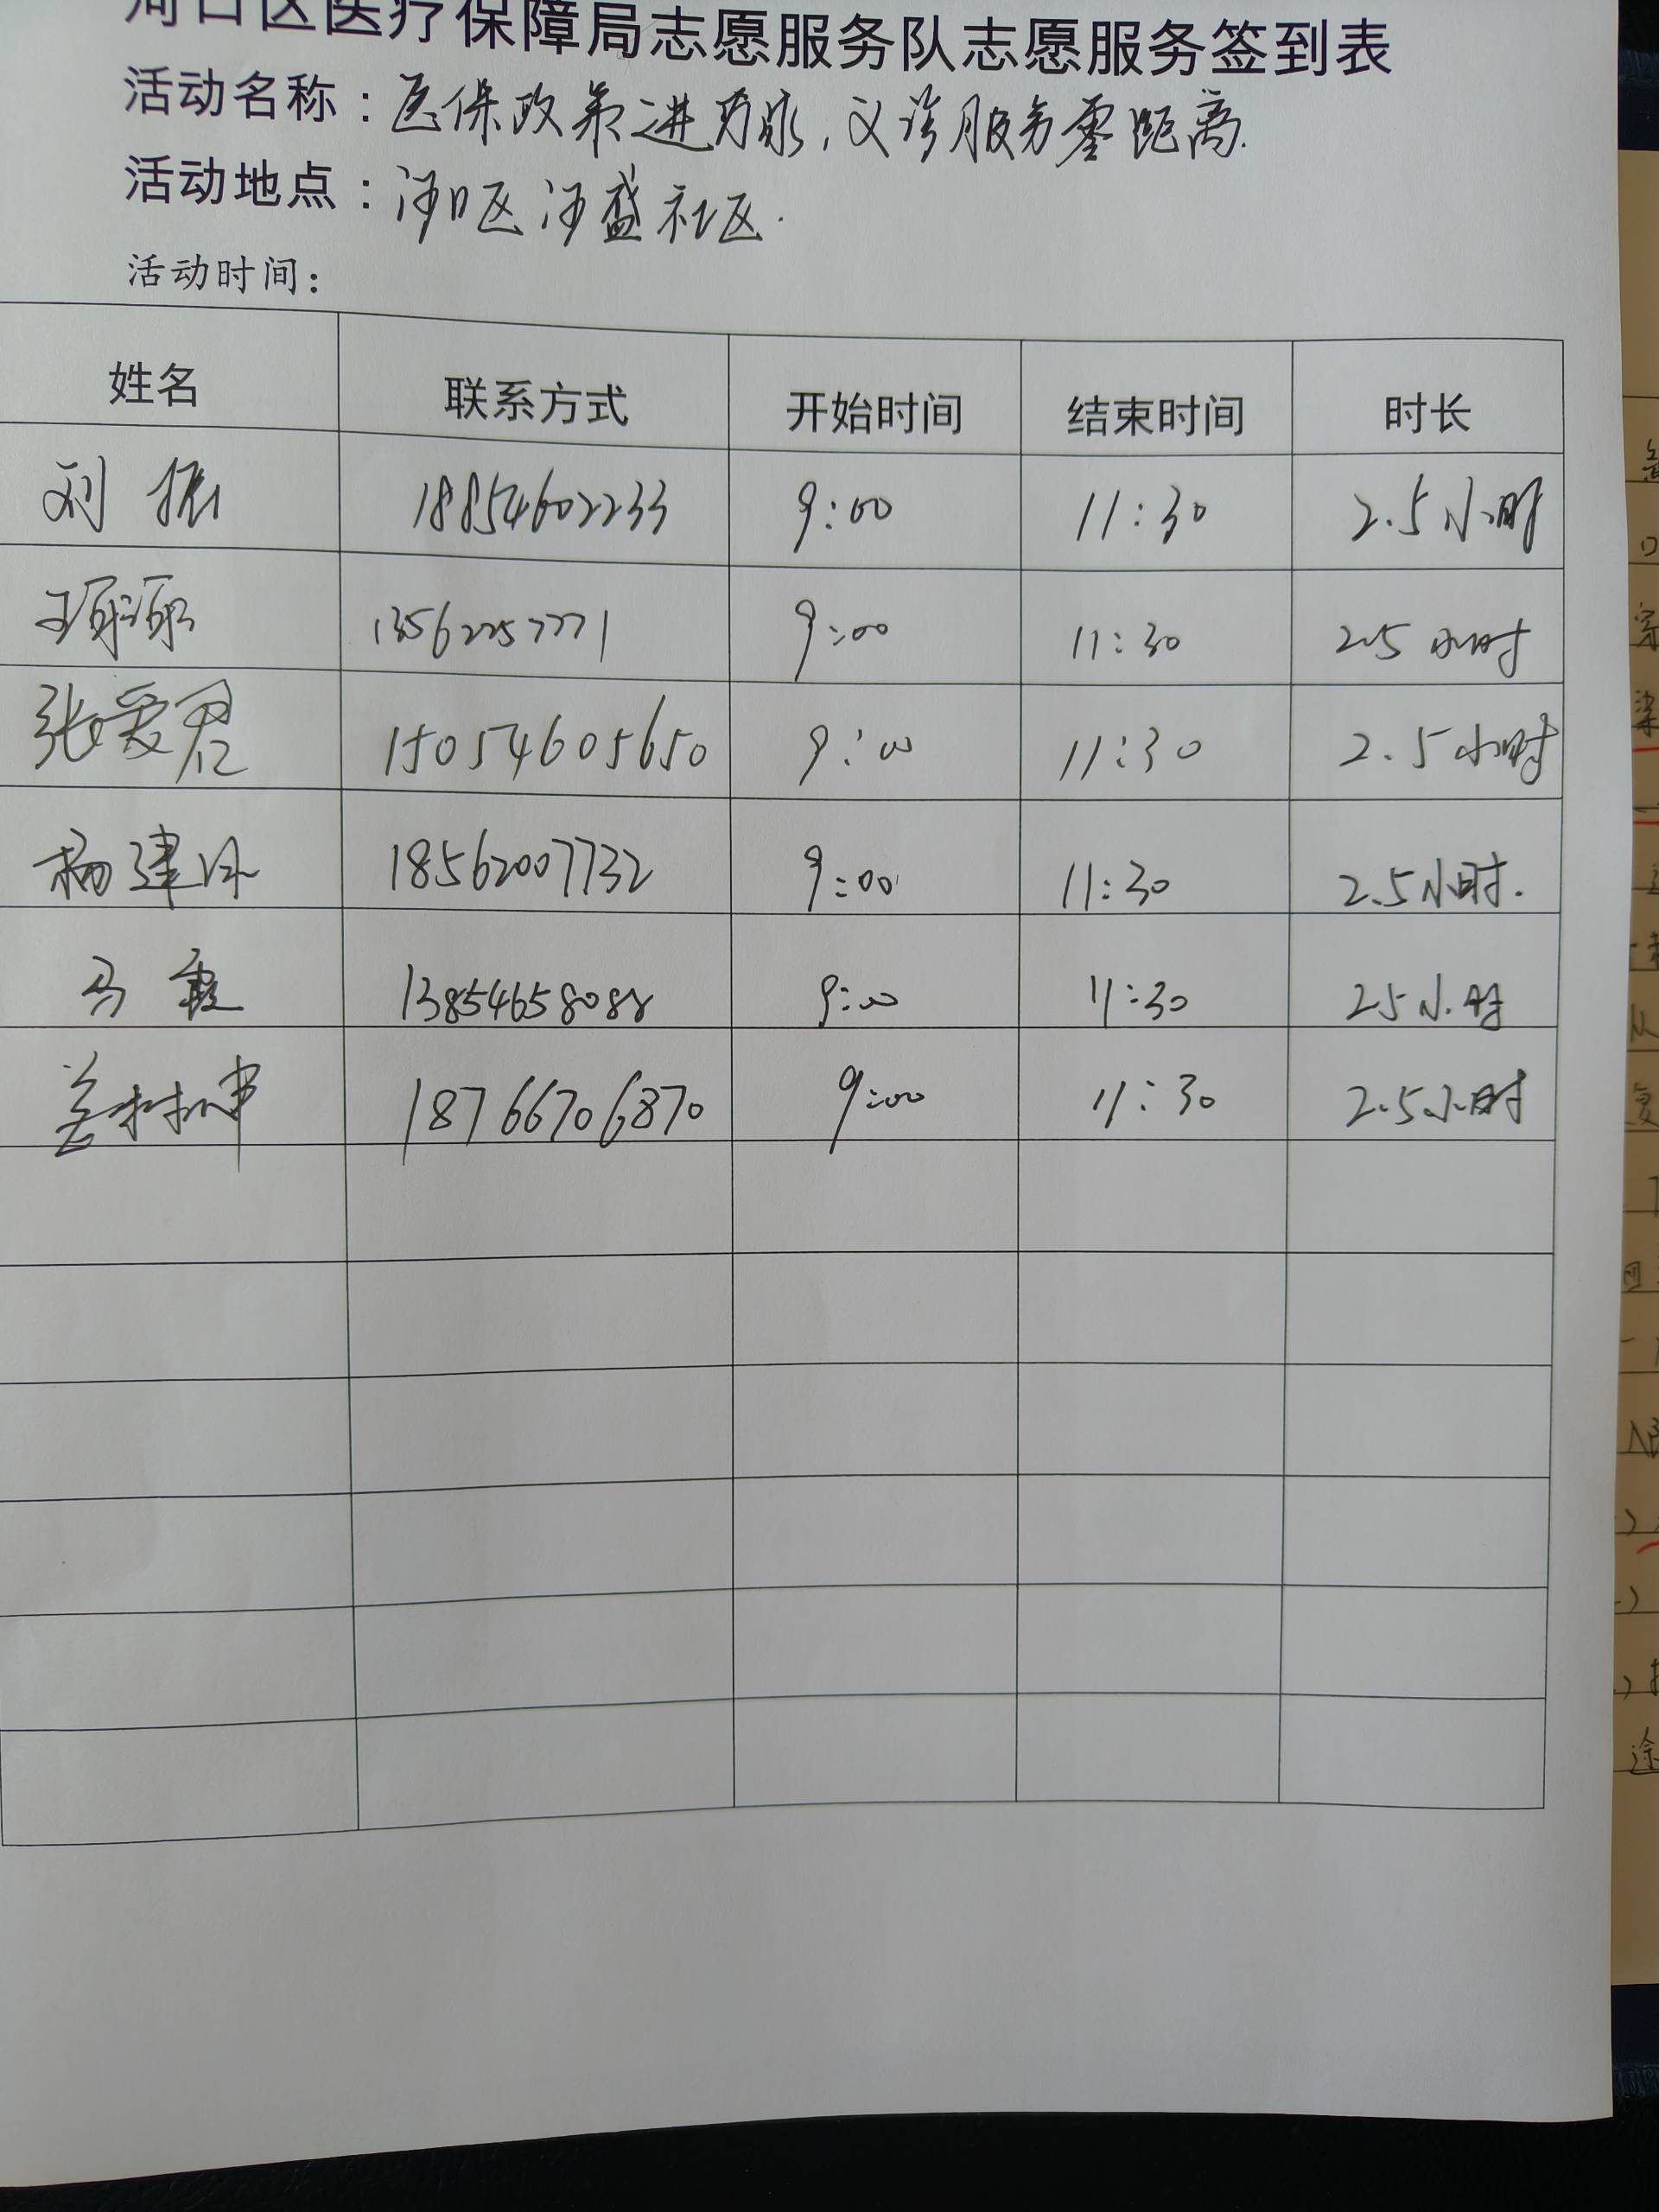 河口区医疗保障局志愿服务队志愿服务签到表
活动名称：医保政策进万家，义诊服务零距离.
活动地点：河口区河盛社区.
活动时间：
姓名 联系方式 开始时间 结束时间 时长
刘振 18854602233 9:00 11:30 2.5小时
王 9:00 11:30 2.5小时
张爱君 15054605650 9:00 11:30 2.5小时
杨建 18562007732 9:00 11:30 2.5小时.
马霞 13854658088 9:00 11:30 25小时
姜树坤 18766706870 9:00 11:30 2.5小时